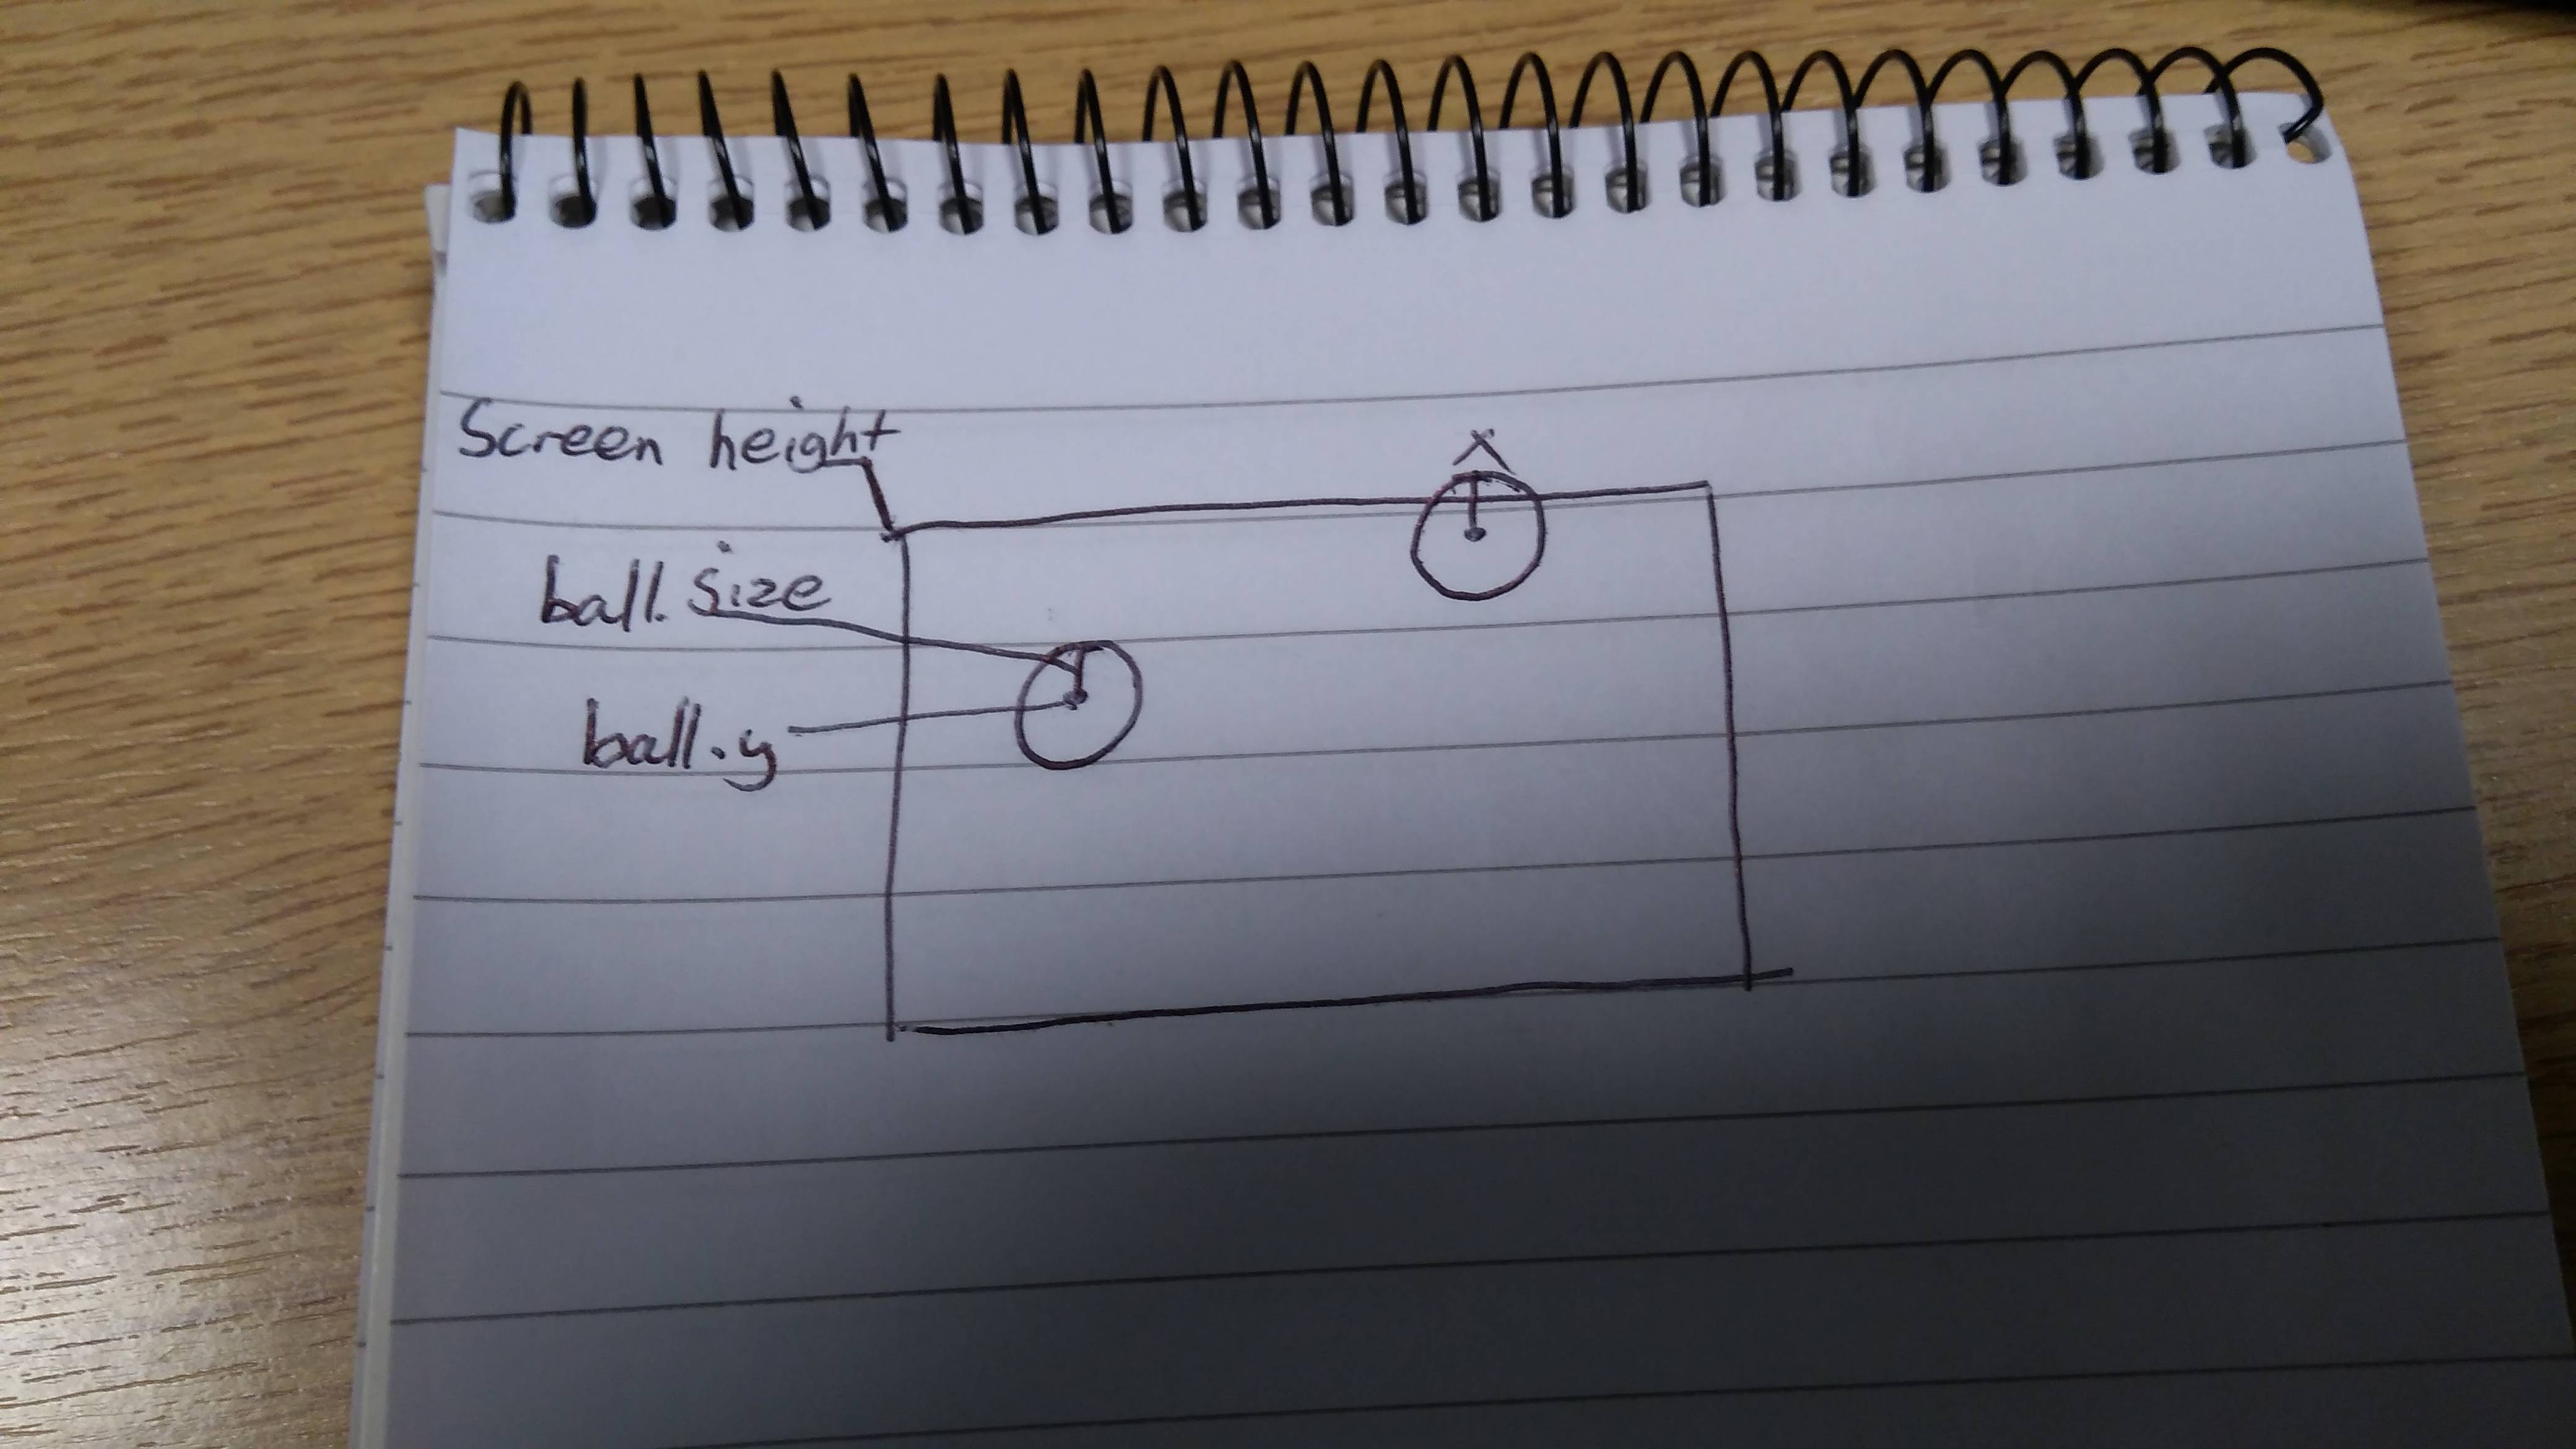 Screen height
X
ball.size
ball.y